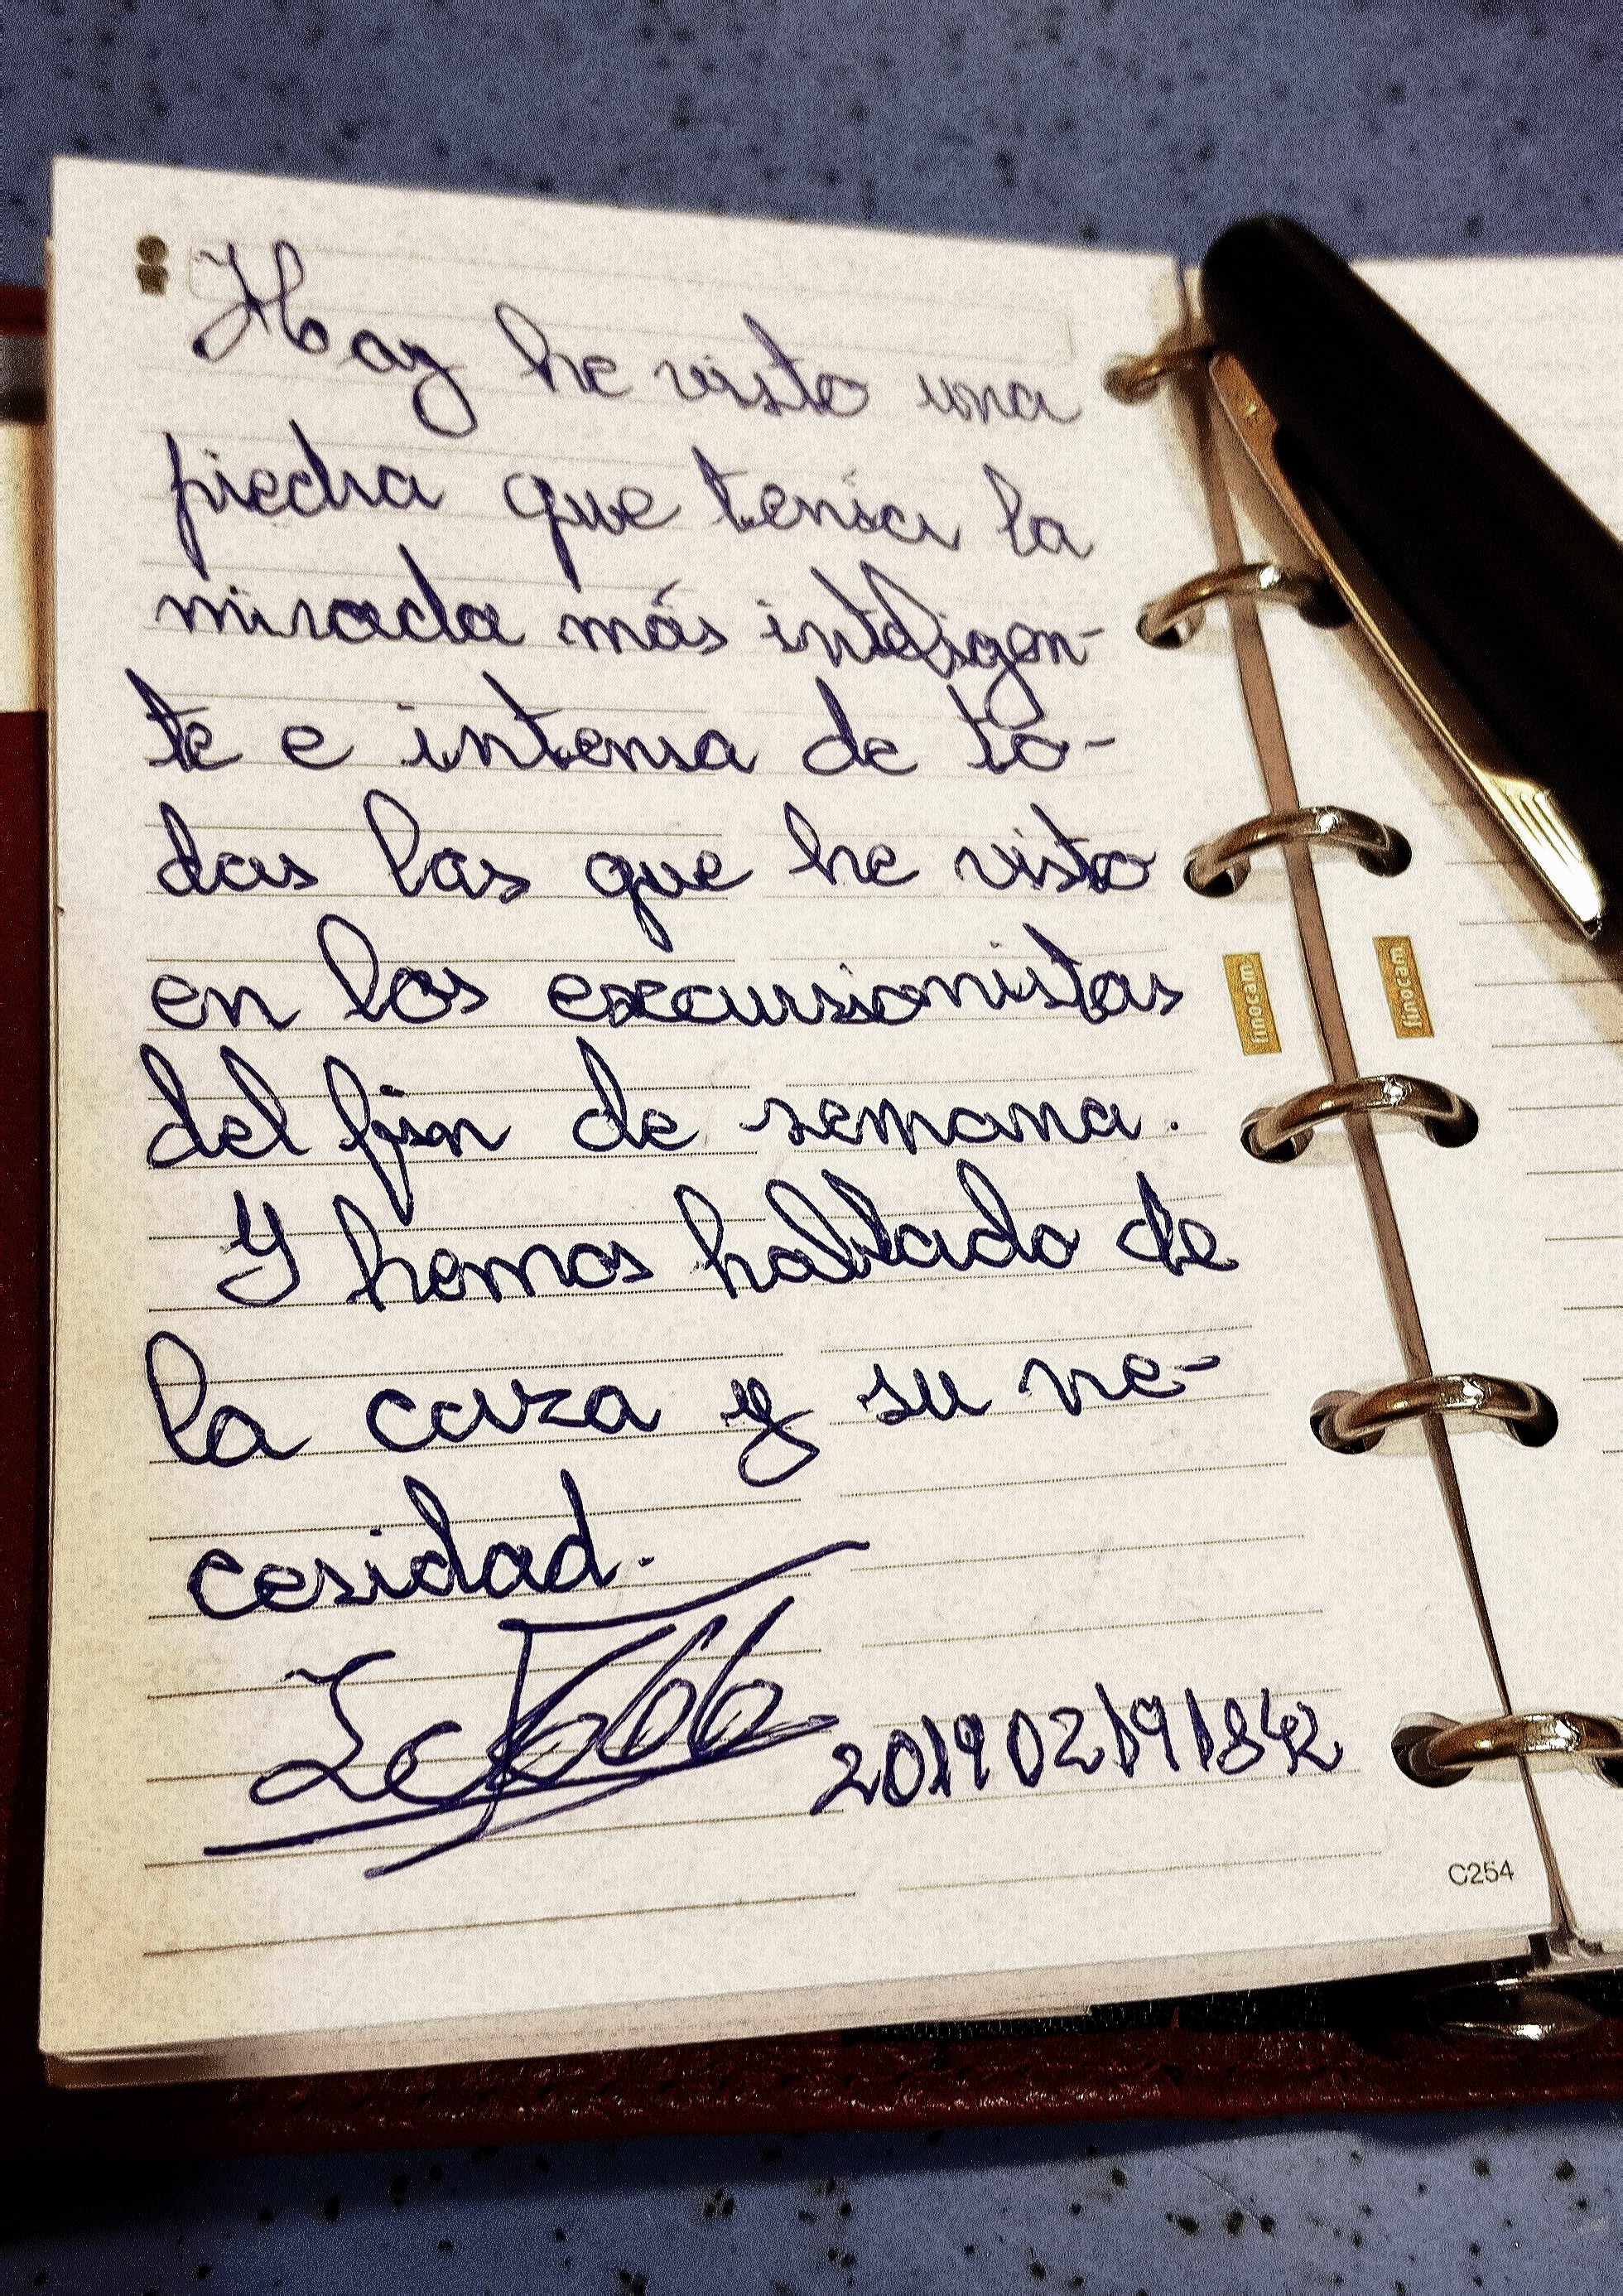 Hoy he visto una
piedra que tenía la
mirada más inteligen-
te e intensa de to-
das las que he visto
en los excursionistas
del fin de semana.
Y hemos hablado de
la caza y su ne-
cesidad.
201902191842
finocam
finocam
C254